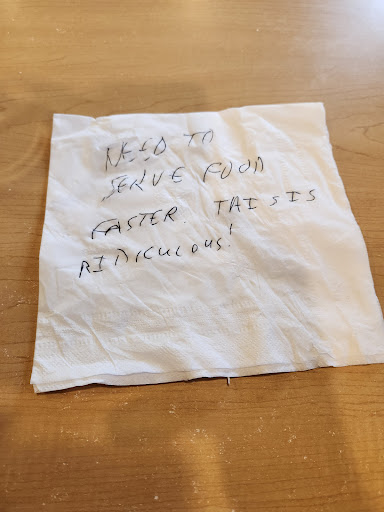 NEED TO
SERVE FOOD
FASTER. THIS IS
RIDICULOUS!